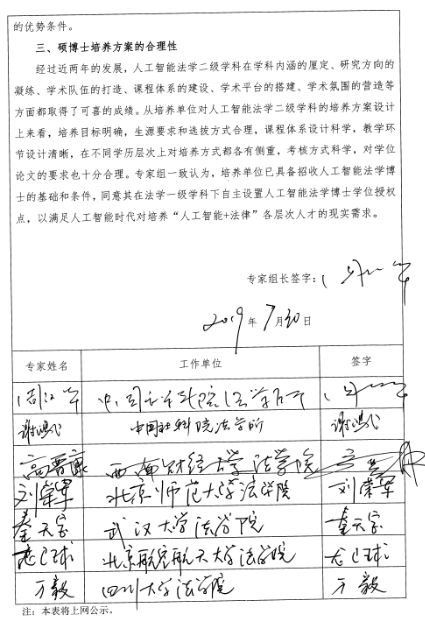 的优势条件。
三、硕博士培养方案的合理性
经过近两年的发展，人工智能法学二级学科在学科内涵的厘定、研究方向的
凝练、学术队伍的打造、课程体系的建设、学术平台的搭建、学术氛围的营造等
方面都取得了可喜的成绩。从培养单位对人工智能法学二级学科的培养方案设计
上来看，培养目标明确，生源要求和选拔方式合理，课程体系设计科学，教学环
节设计清晰，在不同学历层次上对培养方式都各有侧重，考核方式科学，对学位
论文的要求也十分合理。专家组一致认为，培养单位已具备招收人工智能法学博
士的基础和条件，同意其在法学一级学科下自主设置人工智能法学博士学位授权
点，以满足人工智能时代对培养“人工智能+法律”各层次人才的现实需求。
专家组长签字：
2019年7月30日
专家姓名 工作单位 签字
中国社科院法学所
中国社科院法学所
高晋康 西南财经大学法学院
刘荣军 北京师范大学法学院 刘荣军
秦天宝 武汉大学法学院 秦天宝
龙卫球 北京航空航天大学法学院 龙卫球
万毅 四川大学法学院 万毅
注：本表将上网公示。